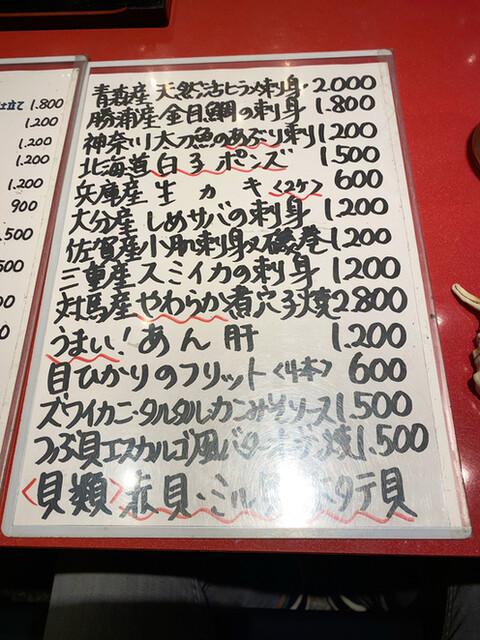 仕立て 1.800
1.200
1.200
1.200
1.200
900
.500
500
青森産 天然活ヒラメ刺身 2.000
勝浦産 金目鯛の刺身 1.800
神奈川 太刀魚のあぶり刺 1.200
北海道 白子ポンズ 1.500
兵庫産 生カキ〈2ケ〉 600
大分産 しめサバの刺身 1.200
佐賀産 小肌刺身又磯巻 1.200
三重産 スミイカの刺身 1.200
対馬産 やわらか煮穴子焼 2.800
うまい!あん肝 1.200
目ひかりのフリット〈4本〉 600
ズワイカニ・タルタルカンみそソース 1.500
つぶ貝エスカルゴ風バター 焼 1.500
〈貝類〉赤貝・ミル貝 ホタテ貝